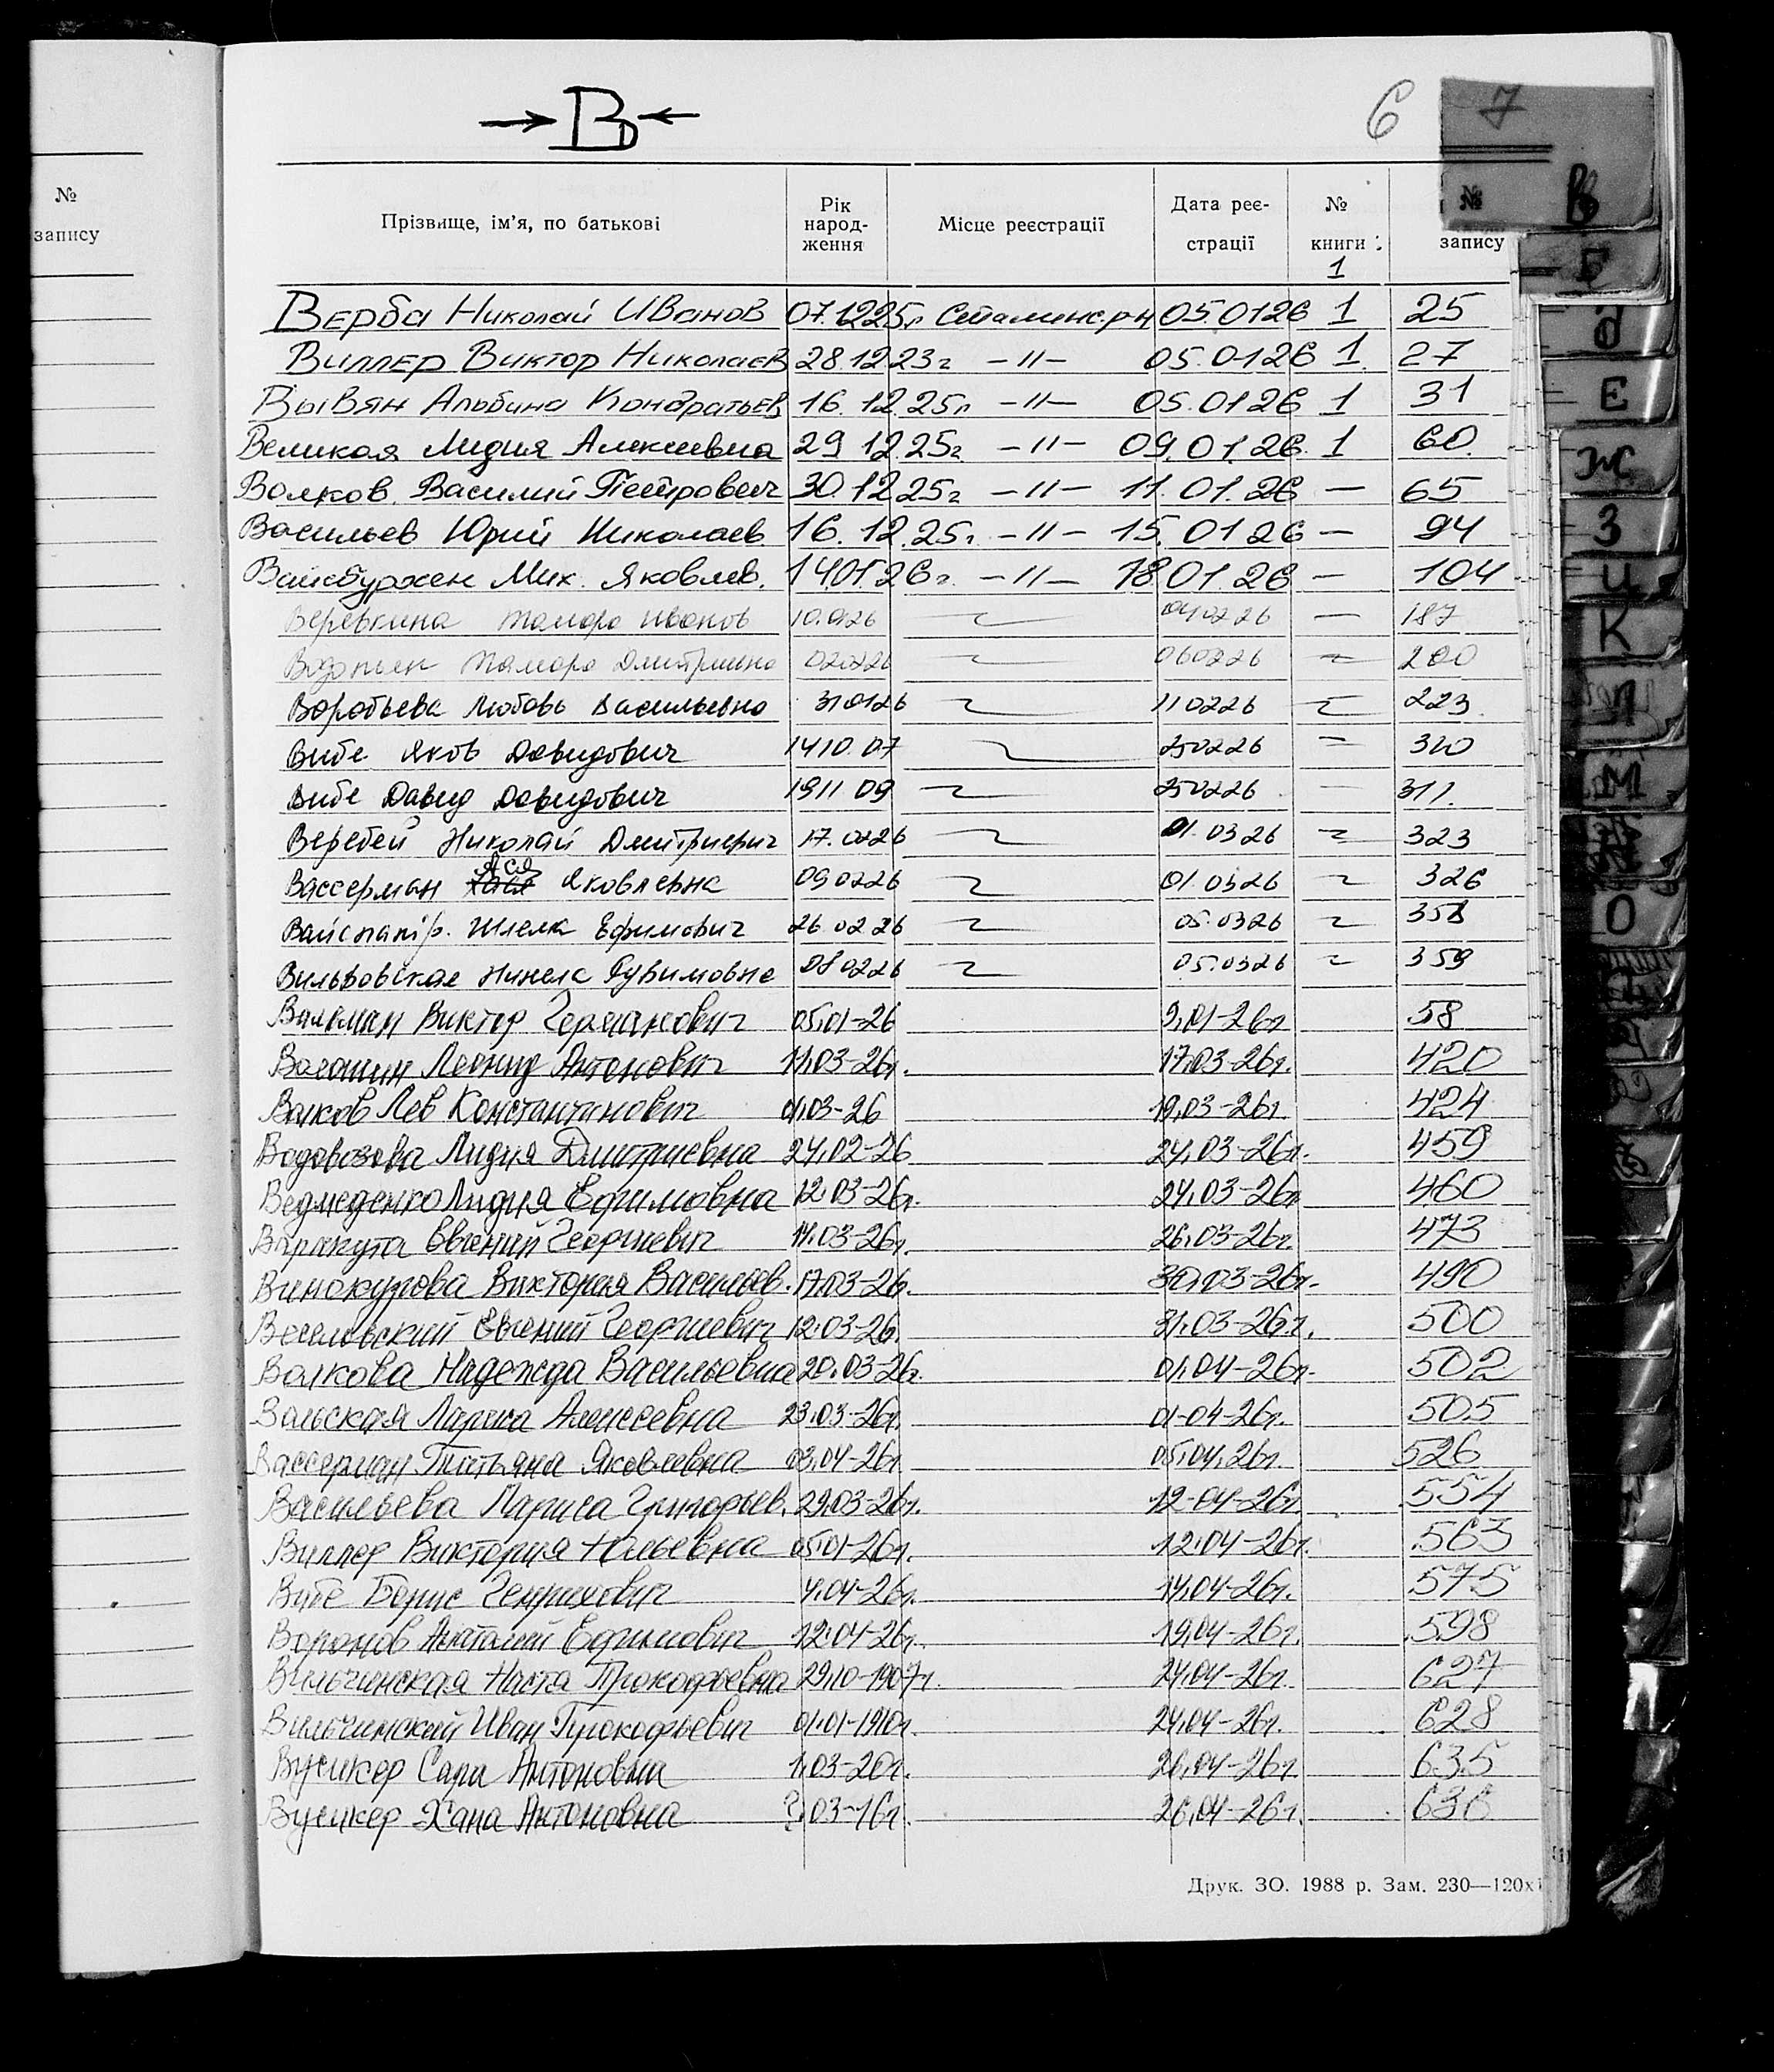 → В ←
6 7
№ запису
Прізвище, ім'я, по батькові Рік народ-ження Місце реєстрації Дата реє-страції № книги № запису
1
Верба Николай Иванов 07.12.25г Сталинс. р-н 05.01 26 1 25
Виллер Виктор Николаев 28.12.23г —"— 05.01 26 1 27
Вывян Альбина Кондратьев 16.12.25г —"— 05.01 26 1 31
Великая Лидия Алексеевна 29 12.25г. —"— 09.01.26. 1 60.
Волков Василий Петрович 30.12 25г —"— 11.01.26 — 65
Васильев Юрий Николаев 16.12.25г. —"— 15.01 26 — 94
Вайсбурхен Мих. Яковлев. 14.01.26г. —"— 18.01.26 — 104
Веревкина Тамара Иванов 040226 — 187
Водопьян Тамара Дмитриевна 020226 060226 200
Воробьева Любовь Васильевна 310126 110226 223
Вибе Яков Давидович 1410.07 250226 310
Вибе Давид Давидович 1911 09 250226 — 311.
Веребей Николай Дмитриевич 17.0226 01.0326 323
Вассерман Ася Яковлевна 090226 01.0326 326
Ефимович 26.02 26 05.0326 358
080226 05.0326 359
Виктор Германович 05,01-26 9,01-26г 58
Леонид Антонович 11,03-26г. 17,03-26г. 420
Волков Лев Константинович 01,03-26 19,03-26г. 424
Водовозова Лидия Дмитриевна 24,02-26 24,03-26г. 459
Ведмеденко Лидия Ефимовна 12,03-26г. 24,03-26г 460
Евгений Георгиевич 14,03-26г. 26,03-26г. 473
Винокурова Виктория Васильев. 17,03-26г. 30,03-26г. 490
Веселовский Евгений Георгиевич 12,03-26. 31,03-26г. 500
Волкова Надежда Васильевна 20,03-26г. 01,04-26г. 502
Вольская Лариса Алексеевна 23,03-26г. 01-04-26г. 505
Вассерман Татьяна Яковлевна 03,04-26г 05,04,26г. 526
Васильева Лариса Григорьев. 29,03-26г. 12-04-26г. 554
Виллер Виктория Юльевна 05,01-26г. 12,04-26г. 563
Вибе Борис Генрихович 4,04-26г. 14,04-26г. 575
Воронов Анатолий Ефимович 12,04-26г. 19,04-26г. 598
Вильчинская Наста Прокофьевна 29,10-1907г. 24,04-26г. 627
Вильчинский Иван Прокофьевич 01,01-1910г. 24,04-26г. 628
Вусикер Сара Антоновна 1,03-20г. 26,04-26г. 635
Вусикер Хана Антоновна ?,03-16г. 26,04-26г. 636
Друк. ЗО. 1988 р. Зам. 230—120х
В
Б
Д
Е
Ж
З
И
К
Л
М
О